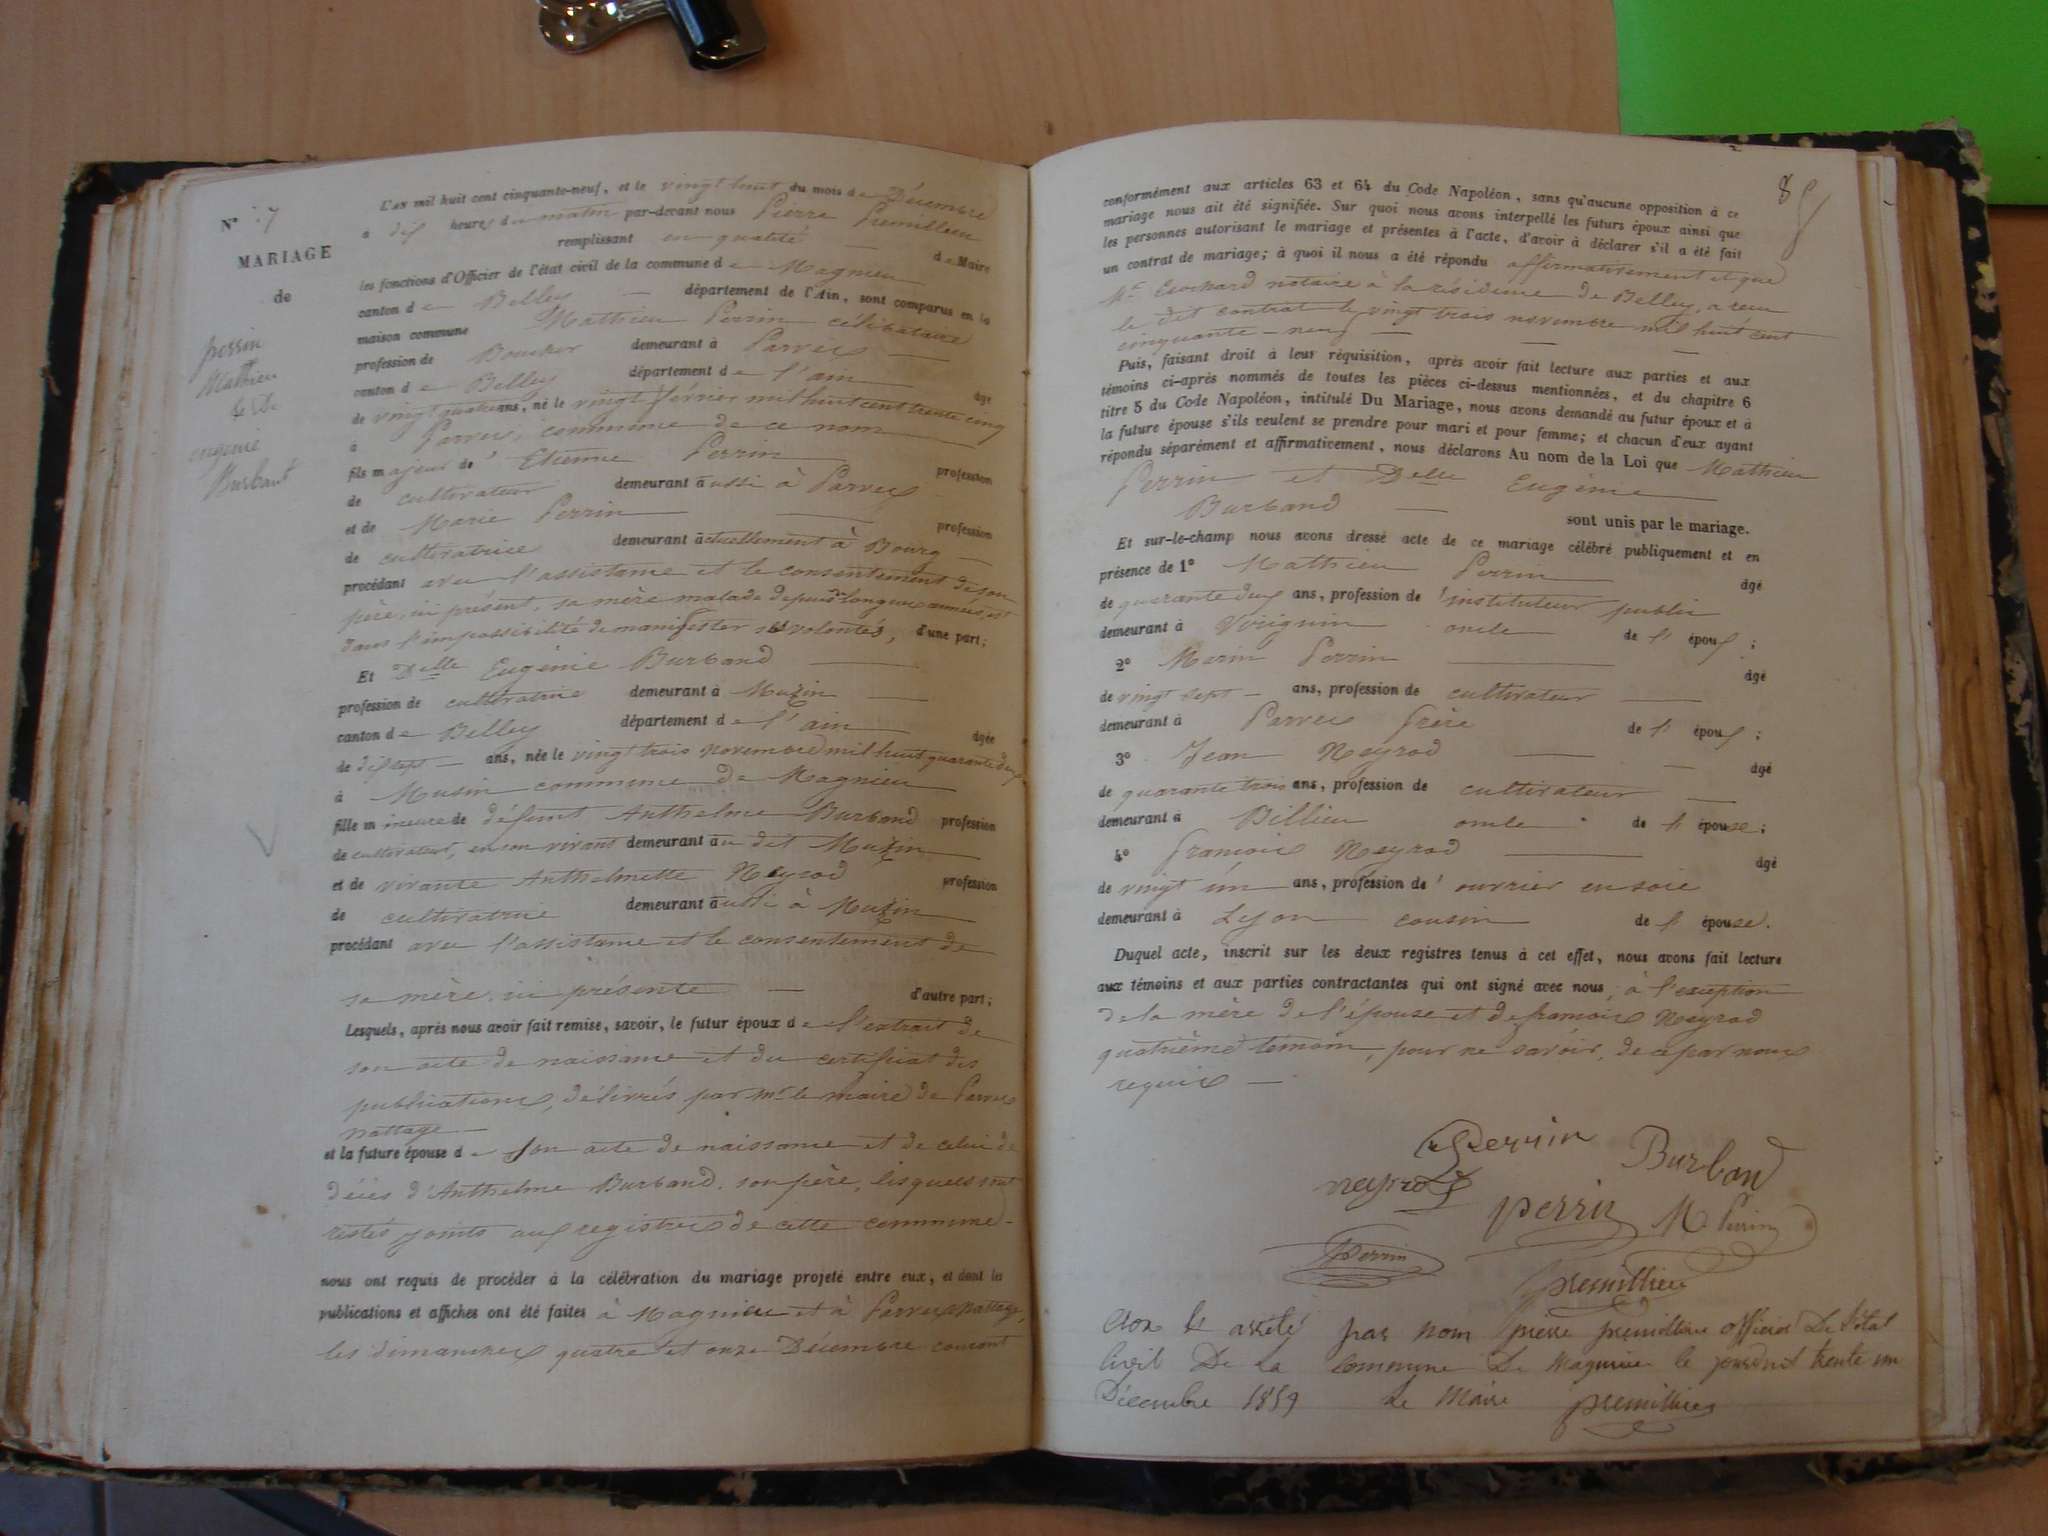 N° 7
MARIAGE
de
perrin
Mathieu
& De
eugénie
Burbant
L'AN mil huit cent cinquante-neuf, et le vingt huit du mois de Décembre
à dix heures du matin par-devant nous Pierre Premillieu
remplissant en qualité de Maire
les fonctions d'Officier de l'état civil de la commune de Magnieu
canton de Belley département de l'Ain, sont comparus en la
maison commune Mathieu Perrin célibataire
profession de demeurant à Parves
canton de Belley département de l'ain âgé
de vingt quatre ans, né le vingt février mil huit cent trente cinq
à Parves, commune de ce nom
fils majeur de Etienne Perrin profession
de cultivateur demeurant aussi à Parves
et de Marie Perrin profession
de cultivatrice demeurant actuellement à Bourg
procédant avec l'assistance et le consentement de son
père, ici présent, sa mère malade depuis de longues années, est
dans l'impossibilité de manifester ses volontés, d'une part;
Et Delle Eugénie Burband
profession de cultivatrice demeurant à Muzin
canton de Belley département de l'ain âgée
de dix sept ans, née le vingt trois novembre mil huit quarante deux
à Musin commune de Magnieu
fille mineure de défunt Anthelme Burband profession
de cultivateur, en son vivant demeurant au dit Muzin
et de vivante Anthelmette Neyrod profession
de cultivatrice demeurant aussi à Muzin
procédant avec l'assistance et le consentement de
sa mère, ici présente d'autre part;
Lesquels, après nous avoir fait remise, savoir, le futur époux de l'extrait de
son acte de naissance et du certificat des
publications, délivrés par Mr le maire de Parves
Nattage
et la future épouse de son acte de naissance et de celui de
décès d'Anthelme Burband, son père, lesquels sont
restés joints aux registres de cette commune
nous ont requis de procéder à la célébration du mariage projeté entre eux, et dont les
publications et affiches ont été faites à Magnieu et à Parves Nattage,
les dimanches quatre et onze Décembre courant
8
conformément aux articles 63 et 64 du Code Napoléon, sans qu'aucune opposition à ce
mariage nous ait été signifiée. Sur quoi nous avons interpellé les futurs époux ainsi que
les personnes autorisant le mariage et présentes à l'acte, d'avoir à déclarer s'il a été fait
un contrat de mariage; à quoi il nous a été répondu affirmativement et que
Me notaire à la résidence de Belley, a reçu
le dit contrat le vingt trois novembre mil huit cent
cinquante-neuf
Puis, faisant droit à leur réquisition, après avoir fait lecture aux parties et aux
témoins ci-après nommés de toutes les pièces ci-dessus mentionnées, et du chapitre 6
titre 5 du Code Napoléon, intitulé Du Mariage, nous avons demandé au futur époux et à
la future épouse s'ils veulent se prendre pour mari et pour femme; et chacun d'eux ayant
répondu séparément et affirmativement, nous déclarons Au nom de la Loi que Mathieu
Perrin et Delle Eugénie
Burband sont unis par le mariage.
Et sur-le-champ nous avons dressé acte de ce mariage célébré publiquement et en
présence de 1° Mathieu Perrin âgé
de quarante deux ans, profession de instituteur public
demeurant à oncle de l'époux;
2° Marin Perrin âgé
de vingt sept ans, profession de cultivateur
demeurant à Parves frère de l'époux;
3° Jean Neyrod âgé
de quarante trois ans, profession de cultivateur
demeurant à Billieu oncle de l'épouse;
4° françois Neyrod âgé
de vingt un ans, profession de ouvrier en soie
demeurant à Lyon cousin de l'épouse.
Duquel acte, inscrit sur les deux registres tenus à cet effet, nous avons fait lecture
aux témoins et aux parties contractantes qui ont signé avec nous, à l'exception
de la mère de l'épouse et de françois Neyrod
quatrième témoin, pour ne savoir, de ce par nous
requis
Perrin
Burband
neyrod
perrin
M Perrin
Perrin
premillieu
Clos et arrêté par nous pierre premillieu officier de l'état
Civil De La Commune de Magnieu le jourd'hui trente un
Décembre 1859 Le Maire premillieu